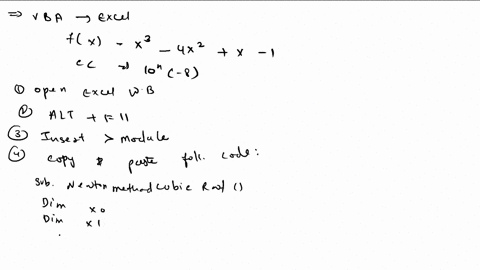 ⇒ VBA → Excel
f(x) - x³ - 4x² + x - 1
cc ⇒ 10^(-8)
① open Excel W.B
② ALT + F11
③ Insert > module
④ copy & paste foll. code:
Sub. Newton method cubic Root ()
Dim x0
Dim x1